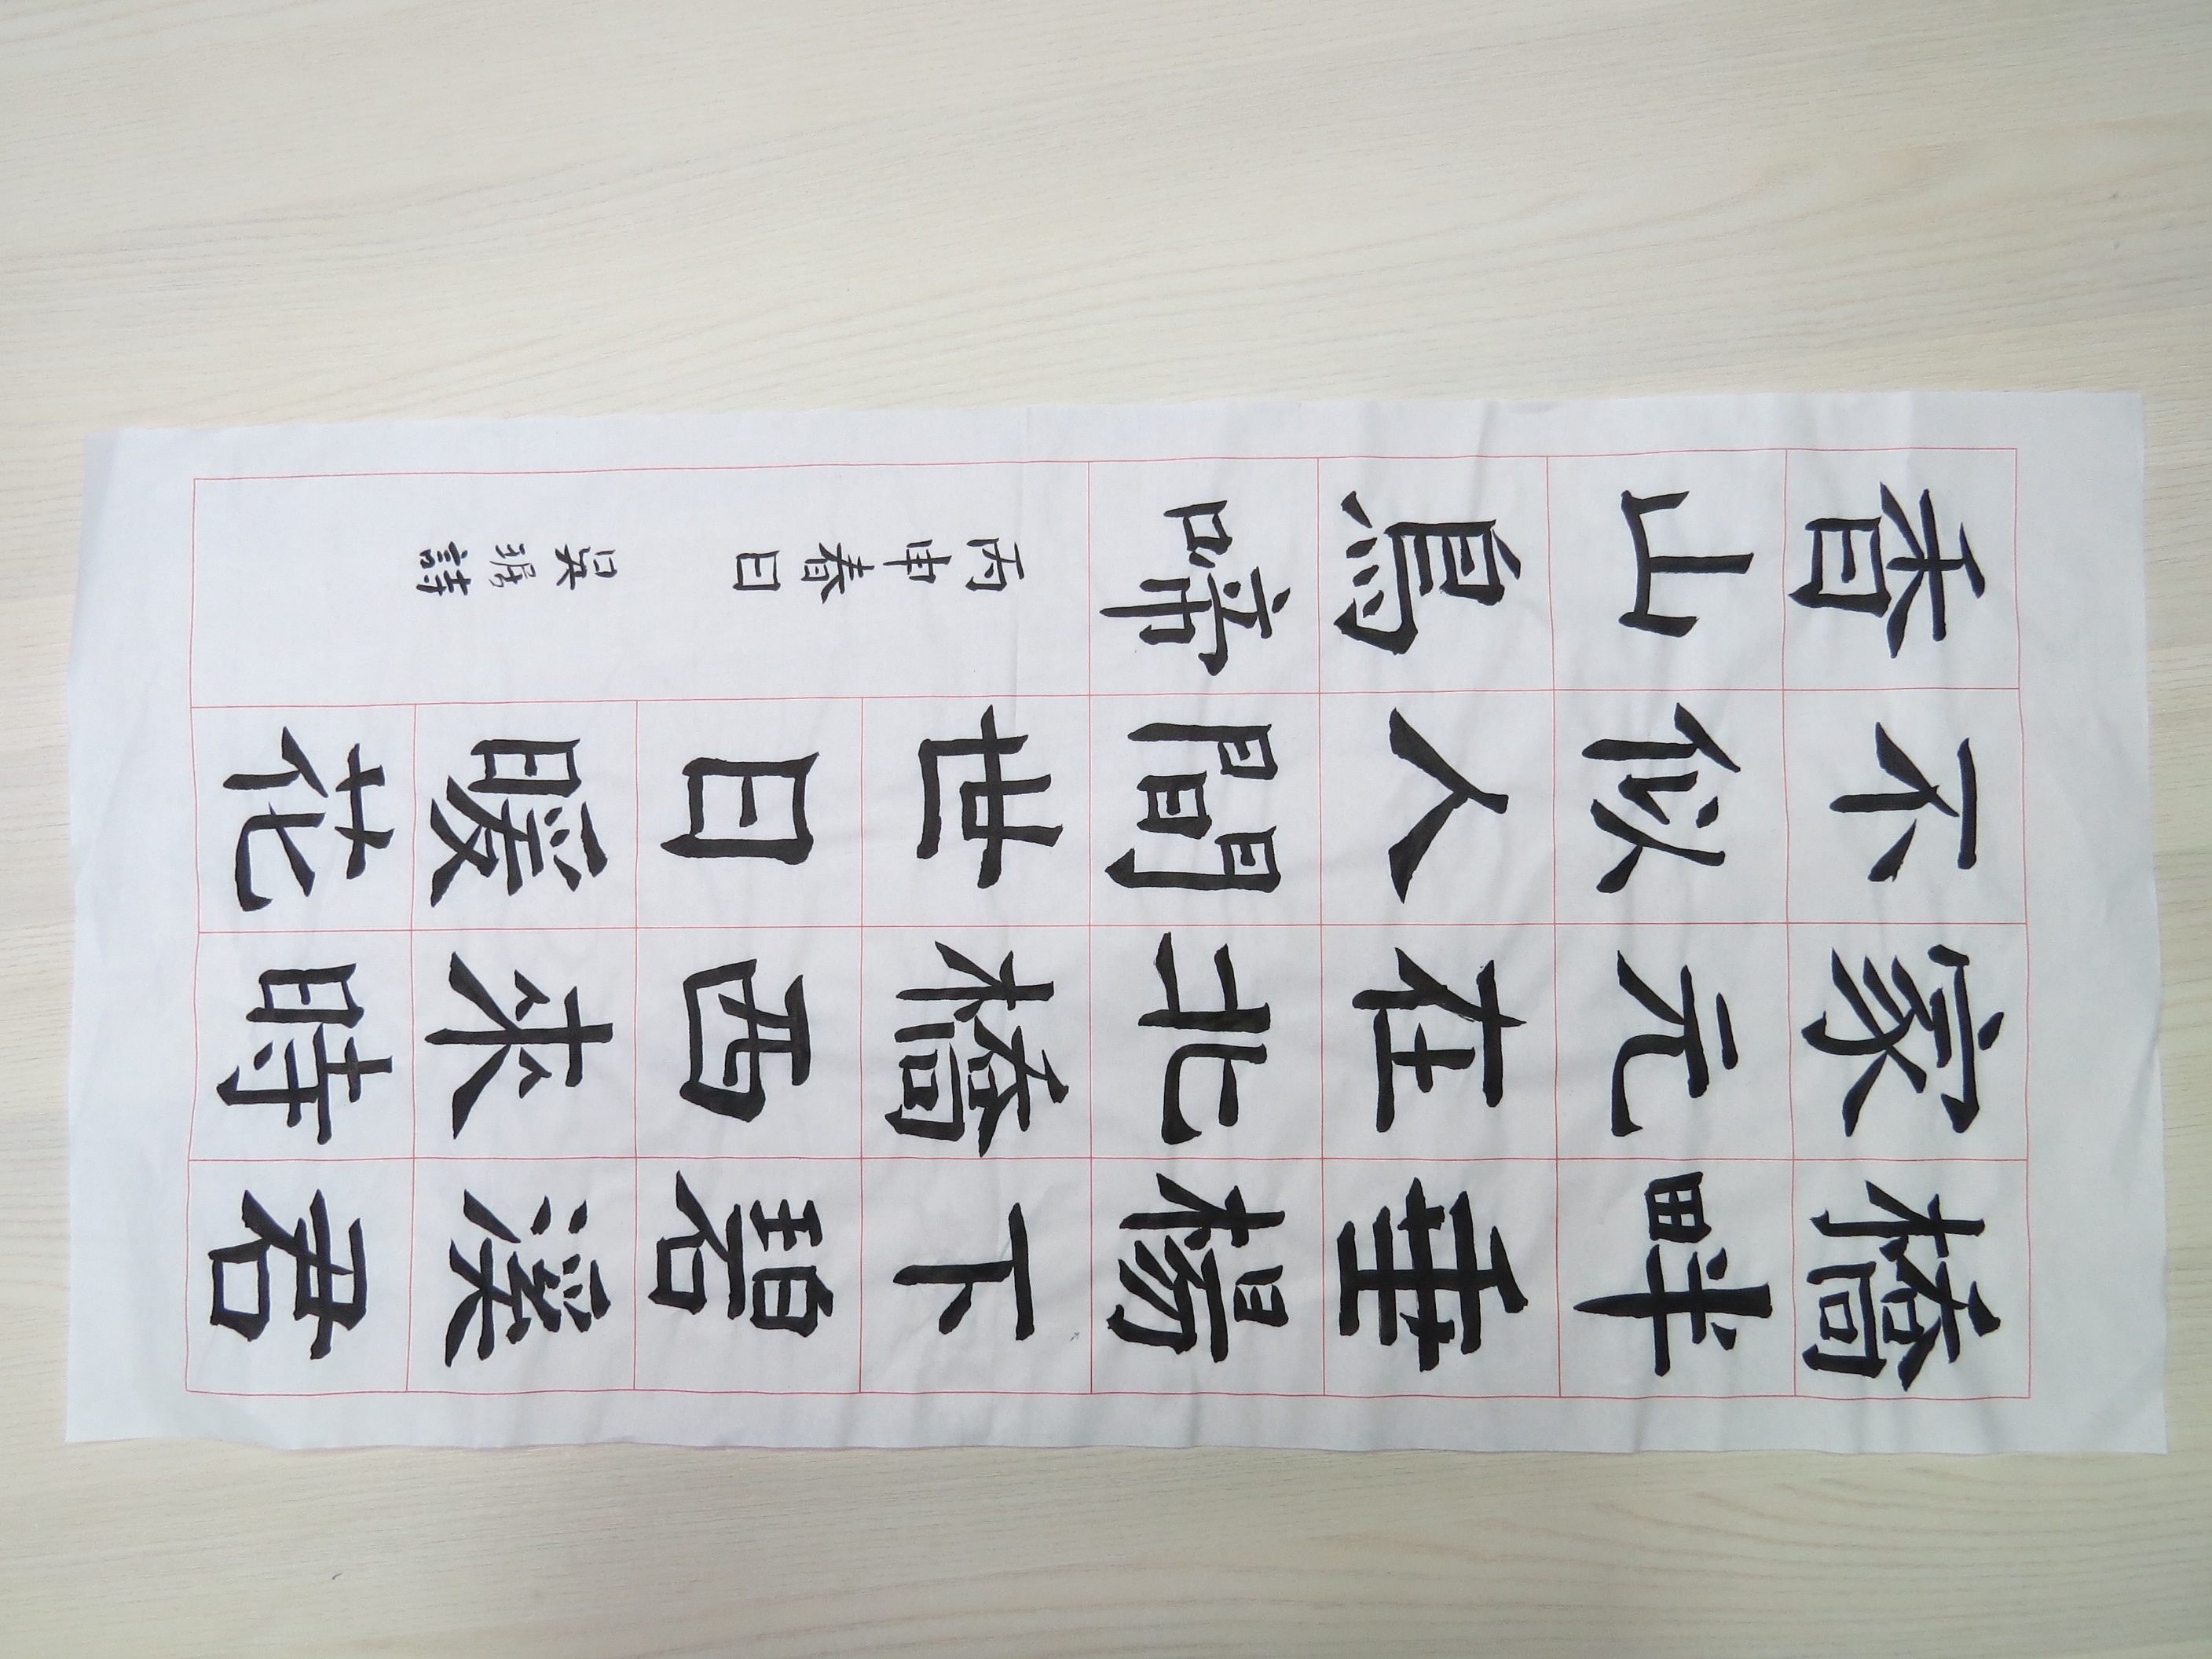 橋畔垂楊下碧溪君
家元在北橋西來時
不似人間世日暖花
香山鳥啼 丙申春日 吳琚詩